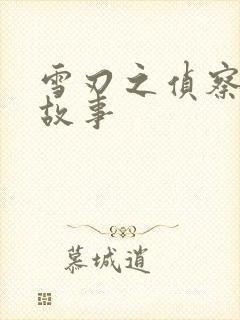 雪刃之偵察
故事
慕城逍